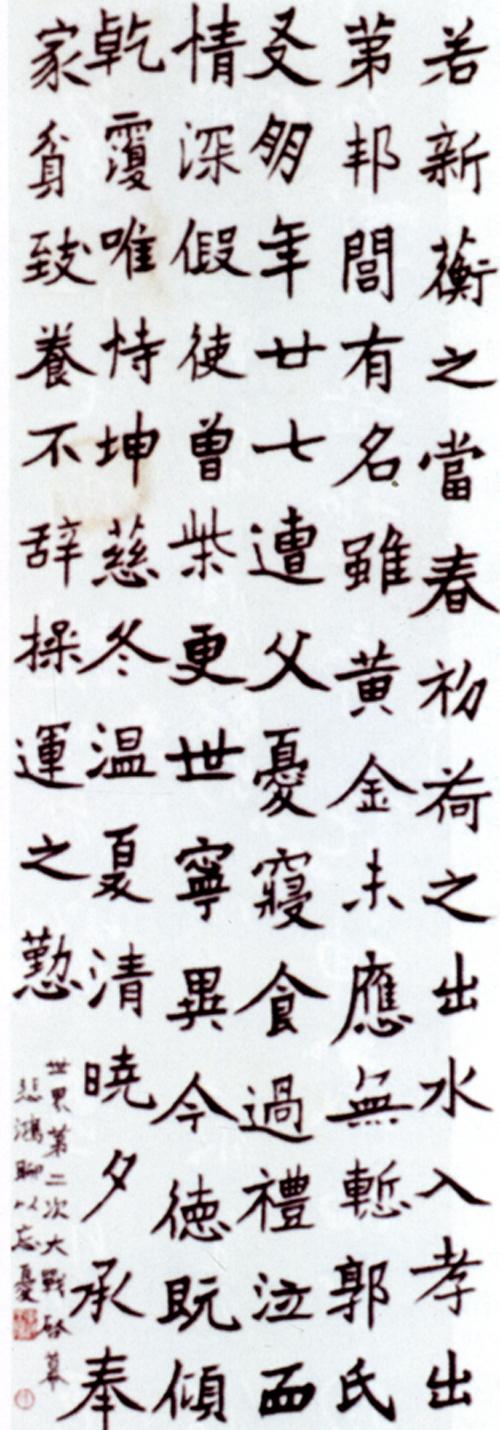 若新蘅之當春初荷之出水入孝出
苐邦閭有名雖黄金未應無慙郭氏
友朋年廿七遭父憂寢食過禮泣血
情深假使曾柴更世寧異今徳既傾
乾覆唯恃坤慈冬温夏清曉夕承奉
家貧致養不辞操運之懃
世界第二次大戰啓幕
悲鴻聊以忘憂